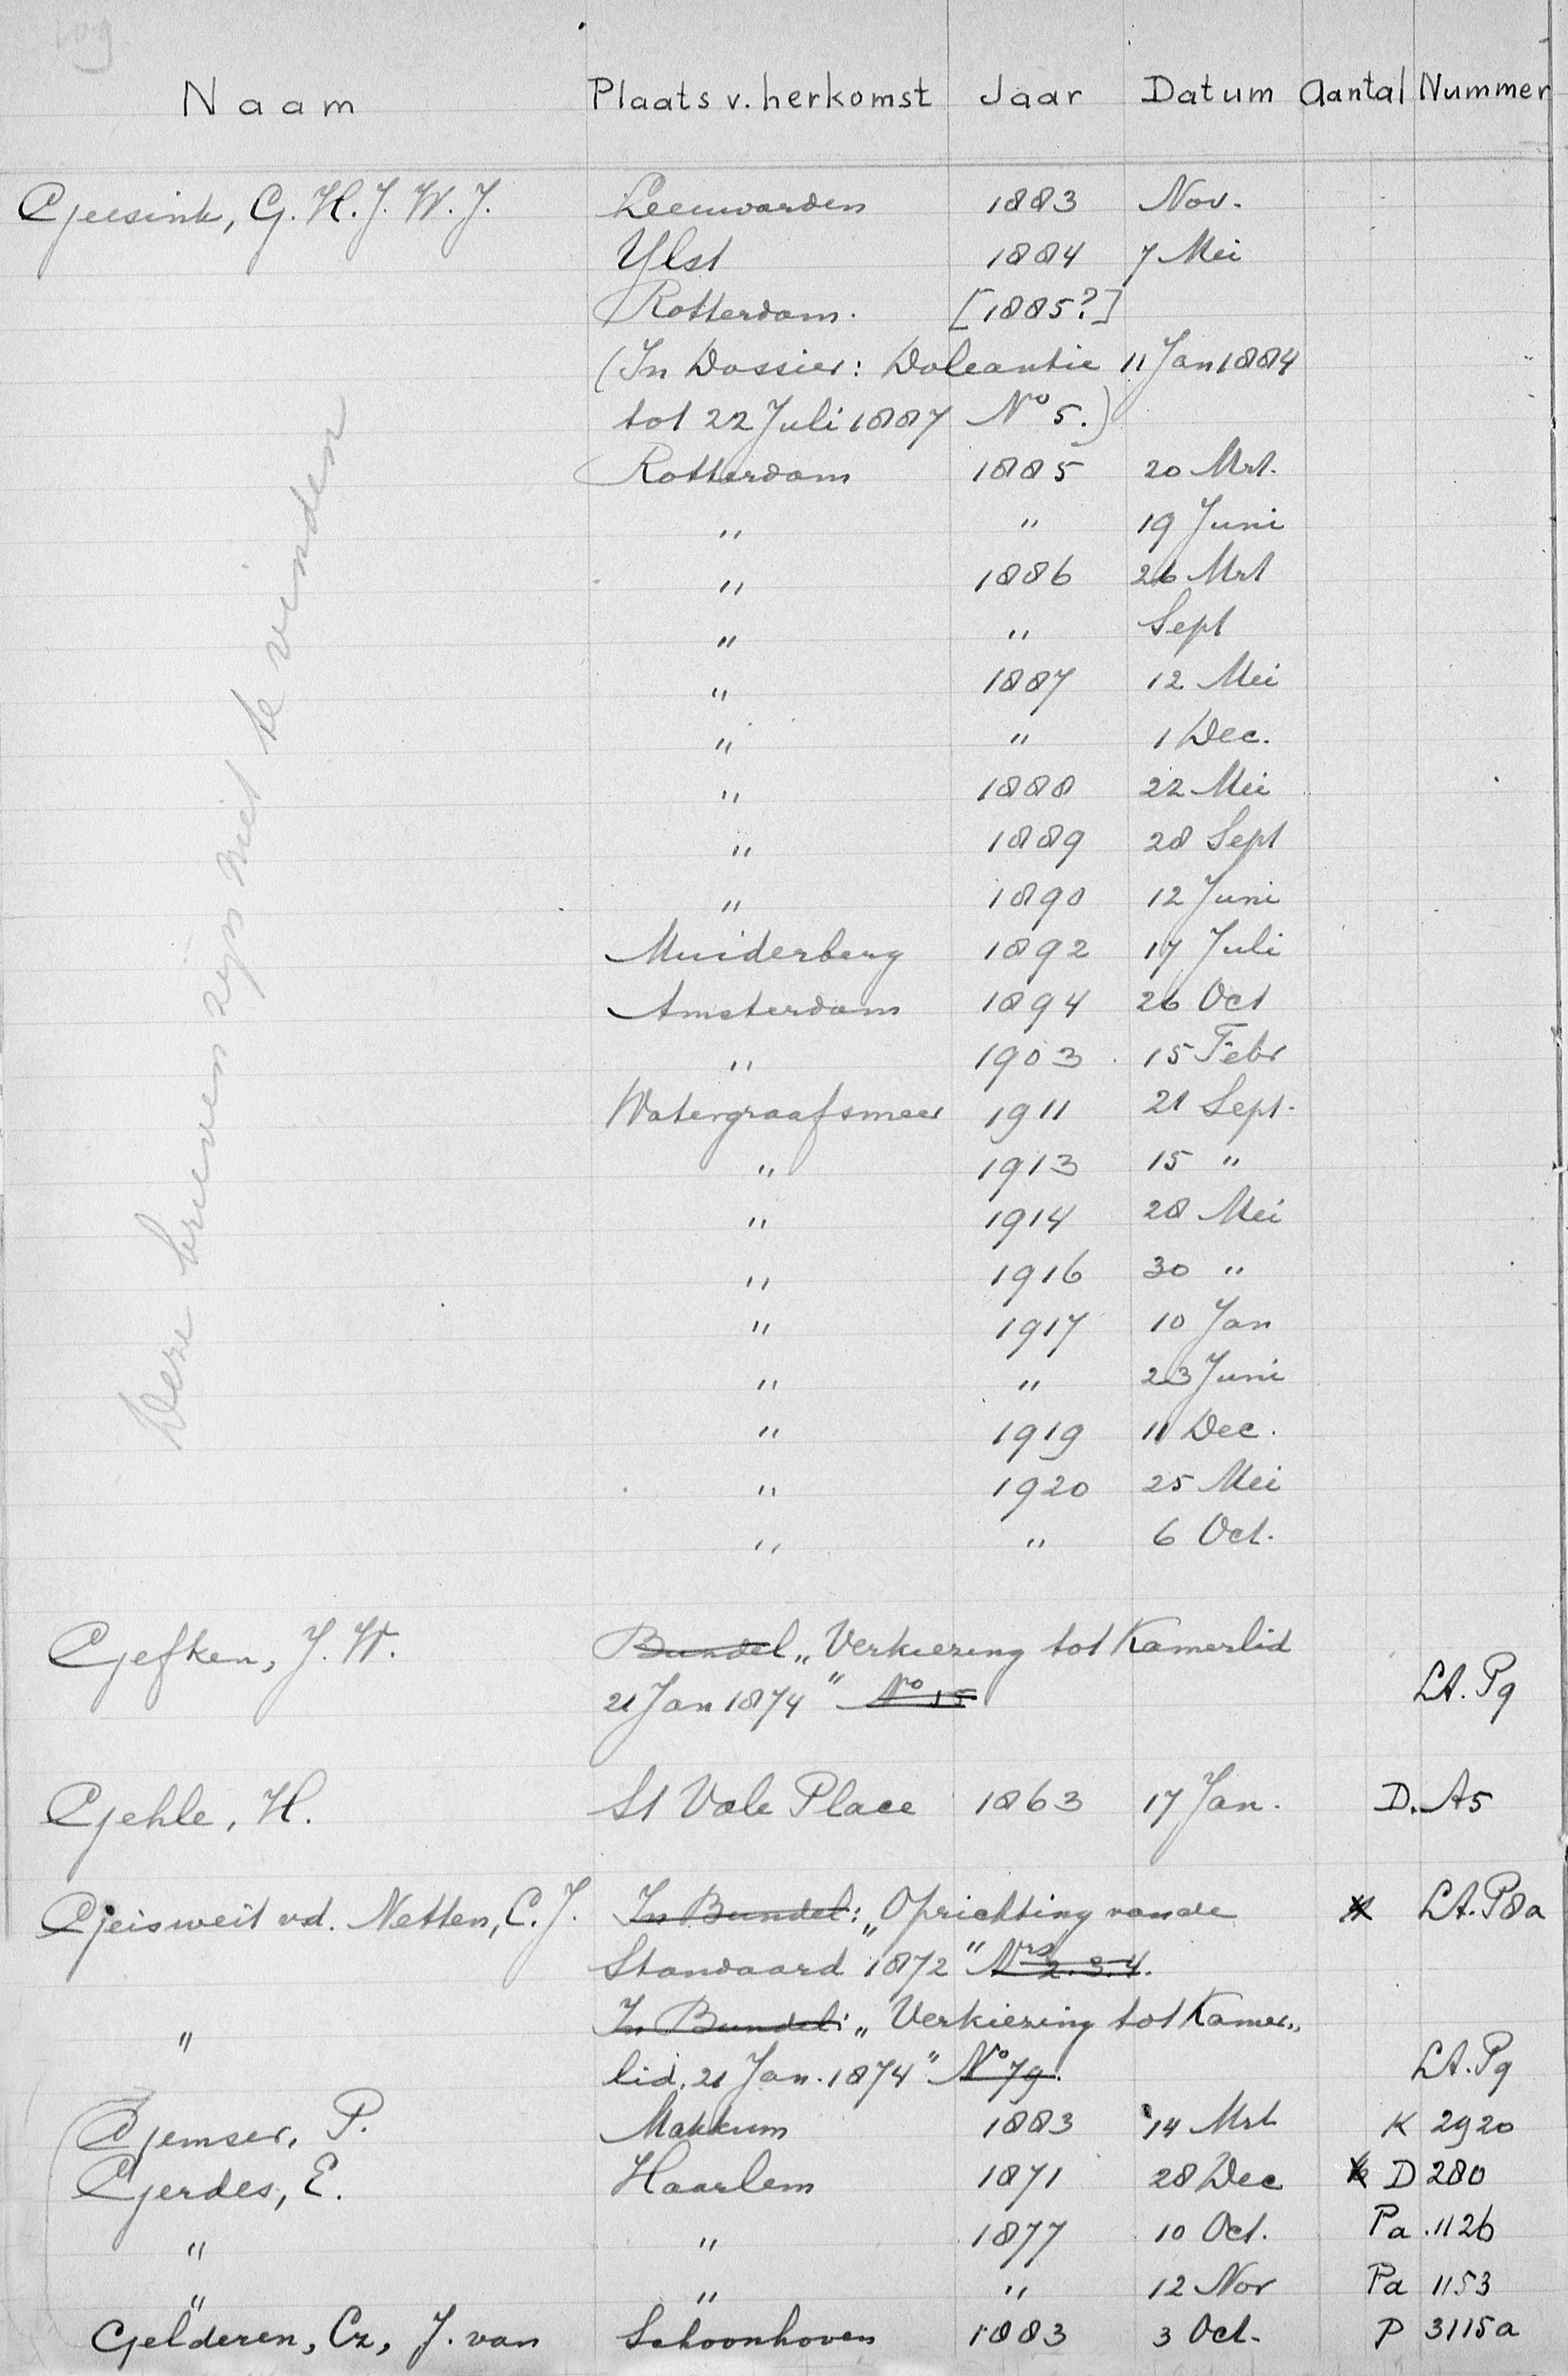 109
Naam Plaats v. herkomst Jaar Datum Aantal Nummer
Geesink, G. H. J. W. J. Leeuwarden 1883 Nov.
Ylst 1884 7 Mei
Rotterdam. [1885?]
(In Dossier: Doleantie 11 Jan 1884
tot 22 Juli 1887 No 5.)
Rotterdam 1885 20 Mrt.
" " 19 Juni
" 1886 26 Mrt
" " Sept
" 1887 12 Mei
" " 1 Dec.
" 1888 22 Mei
" 1889 28 Sept
" 1890 12 Juni
Muiderberg 1892 17 Juli
Amsterdam 1894 26 Oct
" 1903 15 Febr
Watergraafsmeer 1911 21 Sept.
" 1913 15 "
" 1914 28 Mei
" 1916 30 "
" 1917 10 Jan
" " 23 Juni
" 1919 11 Dec.
" 1920 25 Mei
" " 6 Oct.
Deze brieven zijn niet te vinden
Gefken, J. W. Bundel „Verkiezing tot Kamerlid
21 Jan 1874" No 15 LA. P9
Gehle, H. St Vale Place 1863 17 Jan. D. A5
Geisweit vd. Netten, C. J. In Bundel: „Oprichting van de LA. P8a
Standaard 1872" Nrs 2. 3. 4.
" In Bundel: „Verkiezing tot Kamer„
lid. 21 Jan. 1874" No 79. LA. P9
Gemser, P. Makkum 1883 14 Mrt K 2920
Gerdes, E. Haarlem 1871 28 Dec D 280
" " 1877 10 Oct. Pa. 1126
" " " 12 Nov Pa 1153
Gelderen, Cz, J. van Schoonhoven 1883 3 Oct. P 3115a